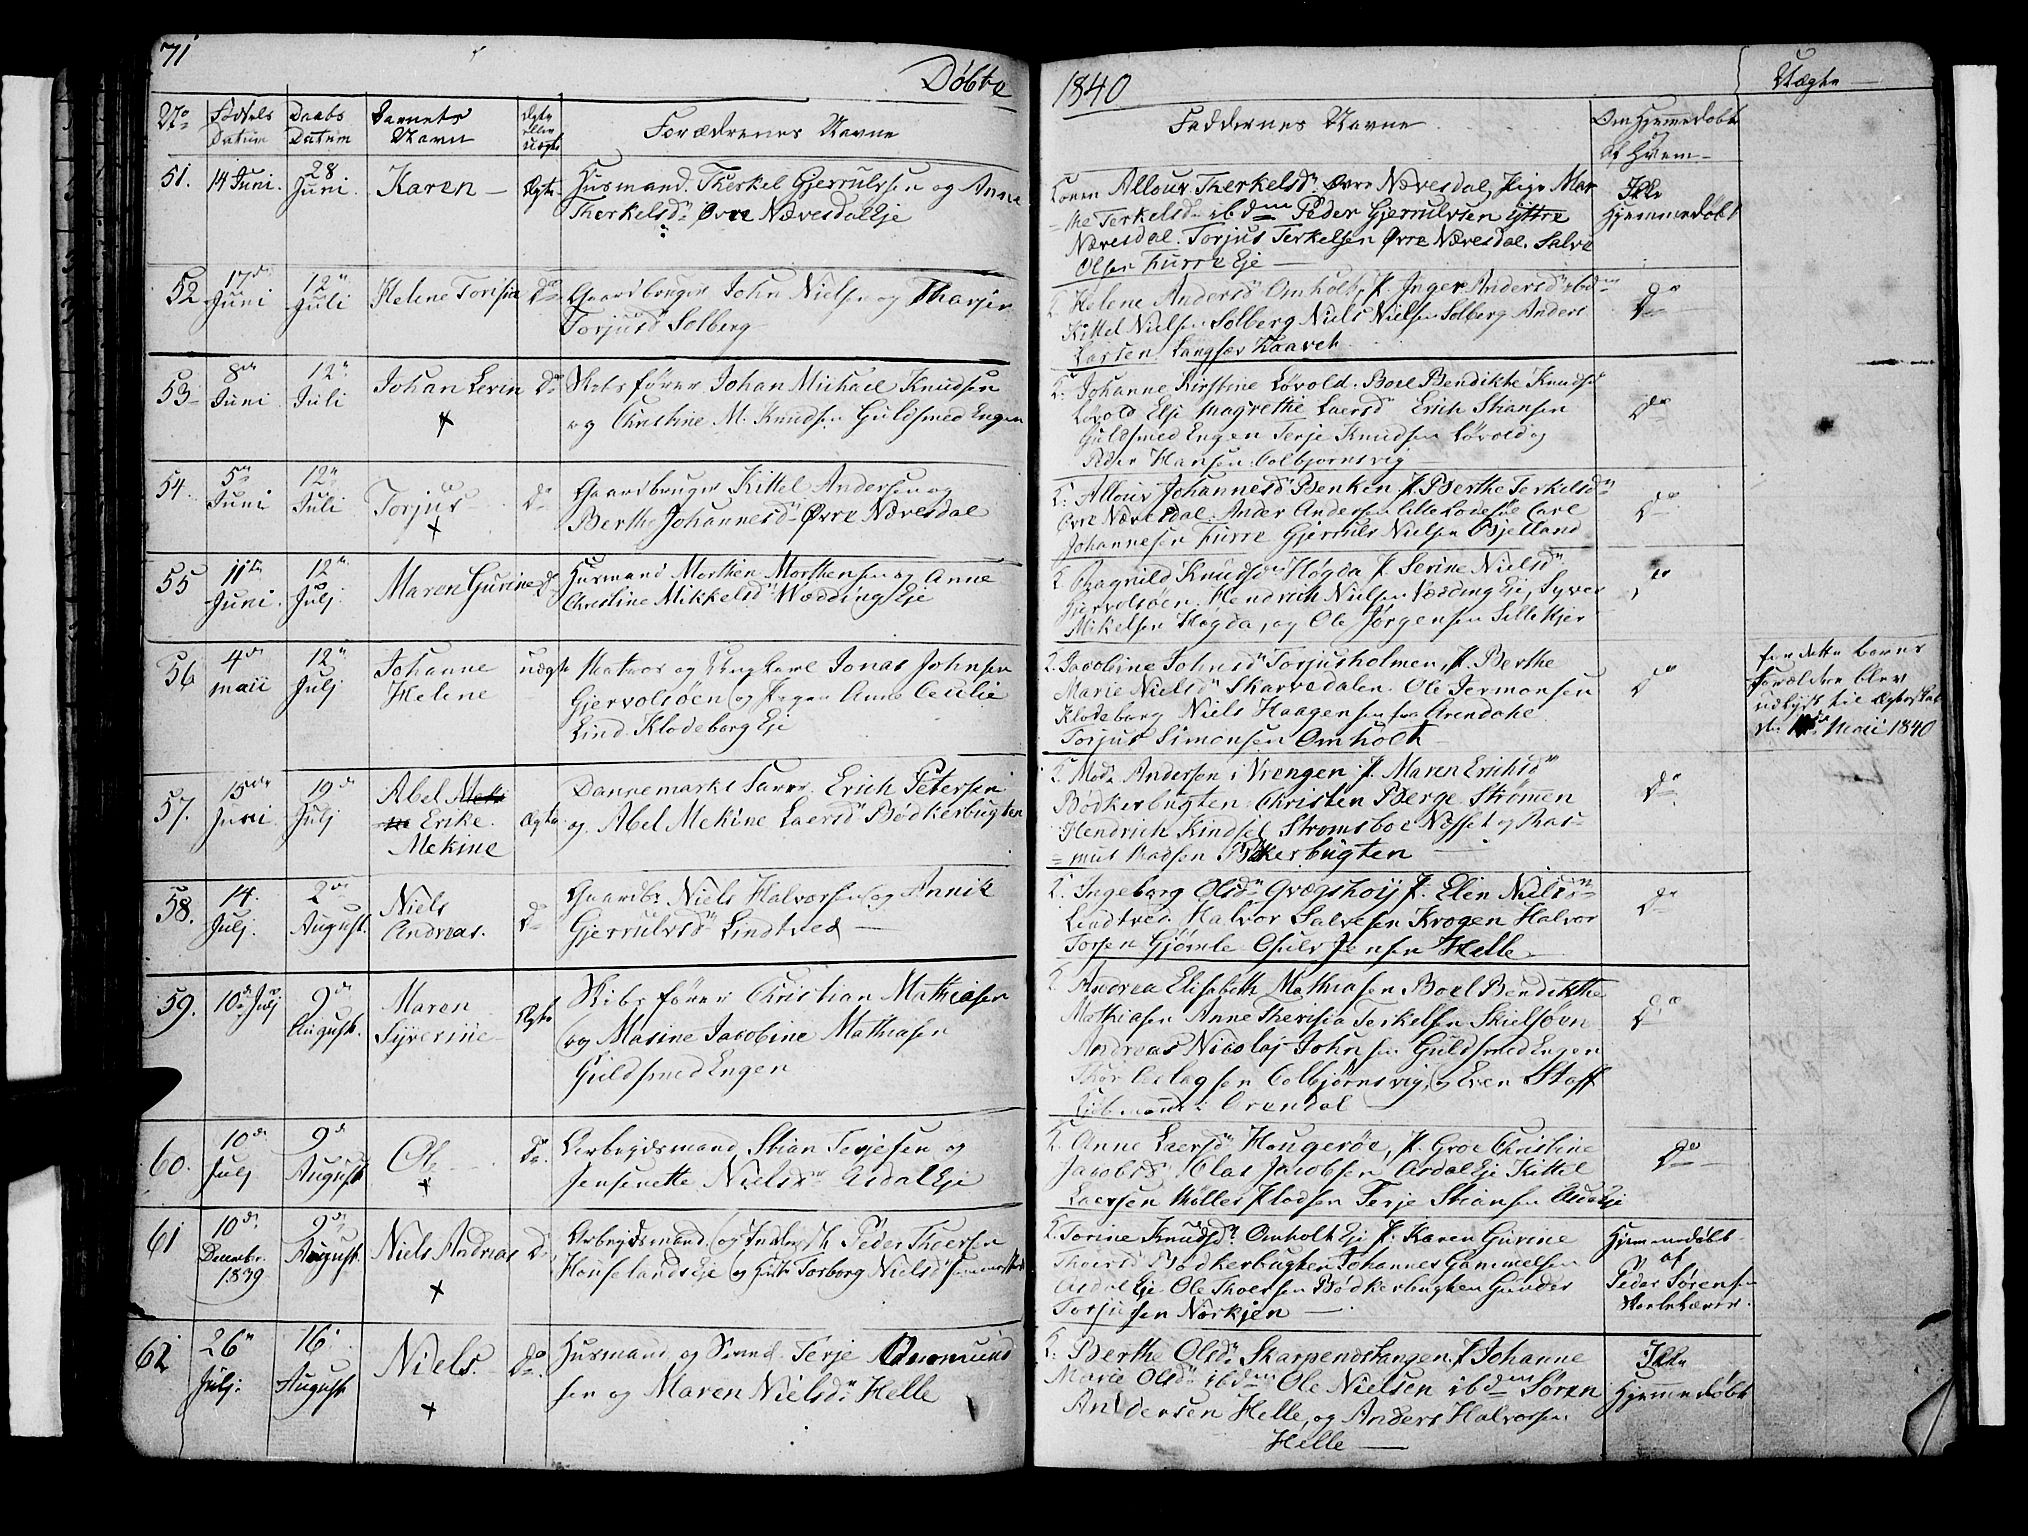 71
Døbte
1840
Uægte
No
Fødsels Datum
Daabs Datum
Barnets Navn
Ægte eller uægte
Forældrenes Navne
Faddernes Navne
Om Hjemmedøbt
af Hvem
51. 14 Juni. 28 Juni. Karen Ægte
Husmand Therkel Gjerrulvsen og Anne
Therkelsdr Øvre Næresdal Eje
Allouv Therkelsdr Øvre Næresdal, Pige Mar
the Terkelsdr ibdm Peder Gjerrulvsen Yttre
Næresdal. Torjus Terkelsen Øvre Næresdal. Salve
Olsen Furre Eje
Ikke
Hjemmedøbt
52 17de Juni 12te Juli Helene Torisia Do
Gaardbruger John Nielsen og Tharjer
Torjusdr Solberg
Helene Andersdr Omholt, P. Inger Andersdr ibdm
Kittel Nielsen Solberg Niels Nielsen Solberg Anders
Larsen Langsæv
Do
53 8de Juni 12te Juli Johan Severin Do
Skibsfører Johan Michael Knudsen
og Christine M. Knudsen Guldsmed Engen
Johanne Kirstine Løvold. Boel Bendikte Knudsdr
Løvold Else Magrethe Laersdr Erich
Guldsmed Engen Terje Knudsen Løvold og
Peder Hansen Colbjørnsvig
Do
54. 5te Juni 12te Juli Torjus Do
Gaardbruger Kittel Andersen og
Berthe Johannesdr Øvre Næresdal
Allouv Johannesdr Benken P. Berthe Terkelsdr
Øvre Næresdal. Ander Andersen Carl
Johannesen Furre Gjerruls Nielsen Bjelland
Do
55 11te Juni 12te Julj Maren Gurine Do
Husmand Morthen Morthensen og Anne
Christine Mikkelsdr Wædding Eje
Ragnild Knudsdr Høgda P. Serine Nielsdr
Gjervolsøen. Hendrich Nielsen Vædding Eje, Syver
Mikelsen Høgda, og Ole Jørgensen
Do
56 4de Maii 12te Julj Johanne Helene uægte
Matros og Ungkarl Jonas Johnsen
Gjervolsøen og Pigen Anne Cecilie
Lind Klodeborg Eje
Jacobine Johnsdr Torjusholmen, P. Berthe
Marie Nielsdr Skarvedalen. Ole Jermonsen
Klodeborg Niels Haagensen fra Arendahl
Torjus Simonsen Omholt
Do
for dette barns
Forældre blev
udlyst til Ægteskab
Maii 1840
57. 15de Juni 19de Julj Abel Erike Mekine Ægte
Dannemarks Farer Erich Petersen
og Abel Mekine Laersdr Bødkerbugten
Andersen i Vrengen P. Maren Erichsdr
Bødkerbugten Christen Berge Strømen
Hendrich Kindsel Strømsboe Næsset og Ras-
mus Madsen Bødkerbugten
Do
58. 14. Julj. 2de August. Niels Andreas. Do
Gaardbr Niels Halvorsen og Annik
Gjerrulvsdr Lindtved
Ingeborg Olsdr P. Elen Nielsdr
Lindtved. Halvor Salvesen Krogen Halvor
Jensen Helle
Do
59. 10de Julj 9de August. Maren Syverine Ægte
Skibsfører Christian Mathiasen
og Masine Jacobine Mathiasen
Guldsmed Engen
Andrea Elisabeth Mathiasen Boel Bendikthe
Mathiasen Anne Theresia Terkelsen
Andreas Nicolaj Johnsen Guldsmed Engen
Thor Aslagsen Colbjørnsvig, og Even
i Arendal
Do
60. 10de Julj 9de August Ole Do
Arbejdsmand Stian Terjesen og
Jensenette Nielsdr Asdal Eje
Anne Laersdr Hougerøe, P. Groe Christine
Jacobsdr Olas Jacobsen Asdal Eje Kittel
Laersen Møller Terje Stiansen Asdal Eje
Do
61 10de December 1839 9de August Niels Andreas Do
Arbejdsmand Peder Thoersen
Houselands Eje og Hust. Torborg Nielsdr
Torine Knudsdr Omholt Eje P. Karen Gurine
Thoersdr Bødkerbugten Johannes Gammelsen
Asdal Eje Ole Thoersen Bødkerbugten Gunder
Torjusen Nørkjen
Hjemmedøbt
af
Peder Sørensen
Skolelærer.
62 26de Julj. 16de August Niels. Do
Husmand og Terje Omund
sen og Maren Nielsdr Helle
Berthe Olsdr Skarpenostangen. P. Johanne
Marie Olsdr ibdm Ole Nielsen ibdm Søren
Andersen Helle, og Anders Halvorsen
Helle
Ikke
Hjemmedøbt